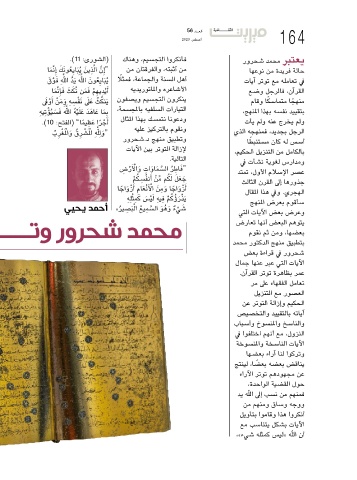 164
ميريت الثقافية
العدد 56
أغسطس 2023
يعتبر محمد شحرور
حالة فريدة من نوعها
في تعامله مع توتر آيات
القرآن، فالرجل وضع
منهجًا متماسكًا وقام
بتقييد نفسه بهذا المنهج،
ولم يخرج عنه ولم يأت
الرجل بجديد، فمنهجه الذي
أسس له كان مستنبطًا
بالكامل من التنزيل الحكيم،
ومدارس لغوية نشأت في
عصر الإسلام الأول، تمتد
جذورها إلى القرن الثالث
الهجري. وفي هذا المقال
سأقوم بعرض المنهج
وعرض بعض الآيات التي
يتوهم البعض أنها تعارض
بعضها، ومن ثم نقوم
بتطبيق منهج الدكتور محمد
شحرور في قراءة بعض
الآيات التي عبر عنها جمال
عمر بظاهرة توتر القرآن.
تعامل الفقهاء على مر
العصور مع التنزيل
الحكيم وإزالة التوتر عن
آياته بالتقييد والتخصيص
والناسخ والمنسوخ وأسباب
النزول، مع أنهم اختلفوا في
الآيات الناسخة والمنسوخة
وتركوا لنا آراء بعضها
يناقض بعضه بعضًا، لينتج
عن مجهودهم توتر الآراء
حول القضية الواحدة،
فمنهم من نسب إلى الله يد
ووجه وساق ومنهم من
أنكروا هذا وقاموا بتأويل
الآيات بشكل يتناسب مع
أن الله «ليس كمثله شيء»،
فأنكروا التجسيم، وهناك
من أثبته، والفرقتان من
أهل السنة والجماعة، فمثلًا
الأشاعره والماتوريديه
ينكرون التجسيم ويصفون
التيارات السلفيه بالمجسمة،
ودعونا نتمسك بهذا المثال
ونقوم بالتركيز عليه
وتطبيق منهج د.شحرور
لإزالة التوتر بين الآيات
التالية.
"فَاطِرُ السَّمَاوَاتِ وَالْأَرْضِ
جَعَلَ لَكُم مِّنْ أَنفُسِكُمْ
أَزْوَاجًا وَمِنَ الْأَنْعَامِ أَزْوَاجًا
يَذْرَؤُكُمْ فِيهِ لَيْسَ كَمِثْلِهِ
شَيْءٌ وَهُوَ السَّمِيعُ الْبَصِيرُ"
(الشورى: 11).
"إِنَّ الَّذِينَ يُبَايِعُونَكَ إِنَّمَا
يُبَايِعُونَ اللَّهَ يَدُ اللَّهِ فَوْقَ
أَيْدِيهِمْ فَمَن نَّكَثَ فَإِنَّمَا
يَنكُثُ عَلَى نَفْسِهِ وَمَنْ أَوْفَى
بِمَا عَاهَدَ عَلَيْهُ اللَّهَ فَسَيُؤْتِيهِ
أَجْرًا عَظِيمًا" (الفتح: 10).
"وَلِلَّهِ الْمَشْرِقُ وَالْمَغْرِبُ
أحمد يحيي
محمد شحرور وتـ